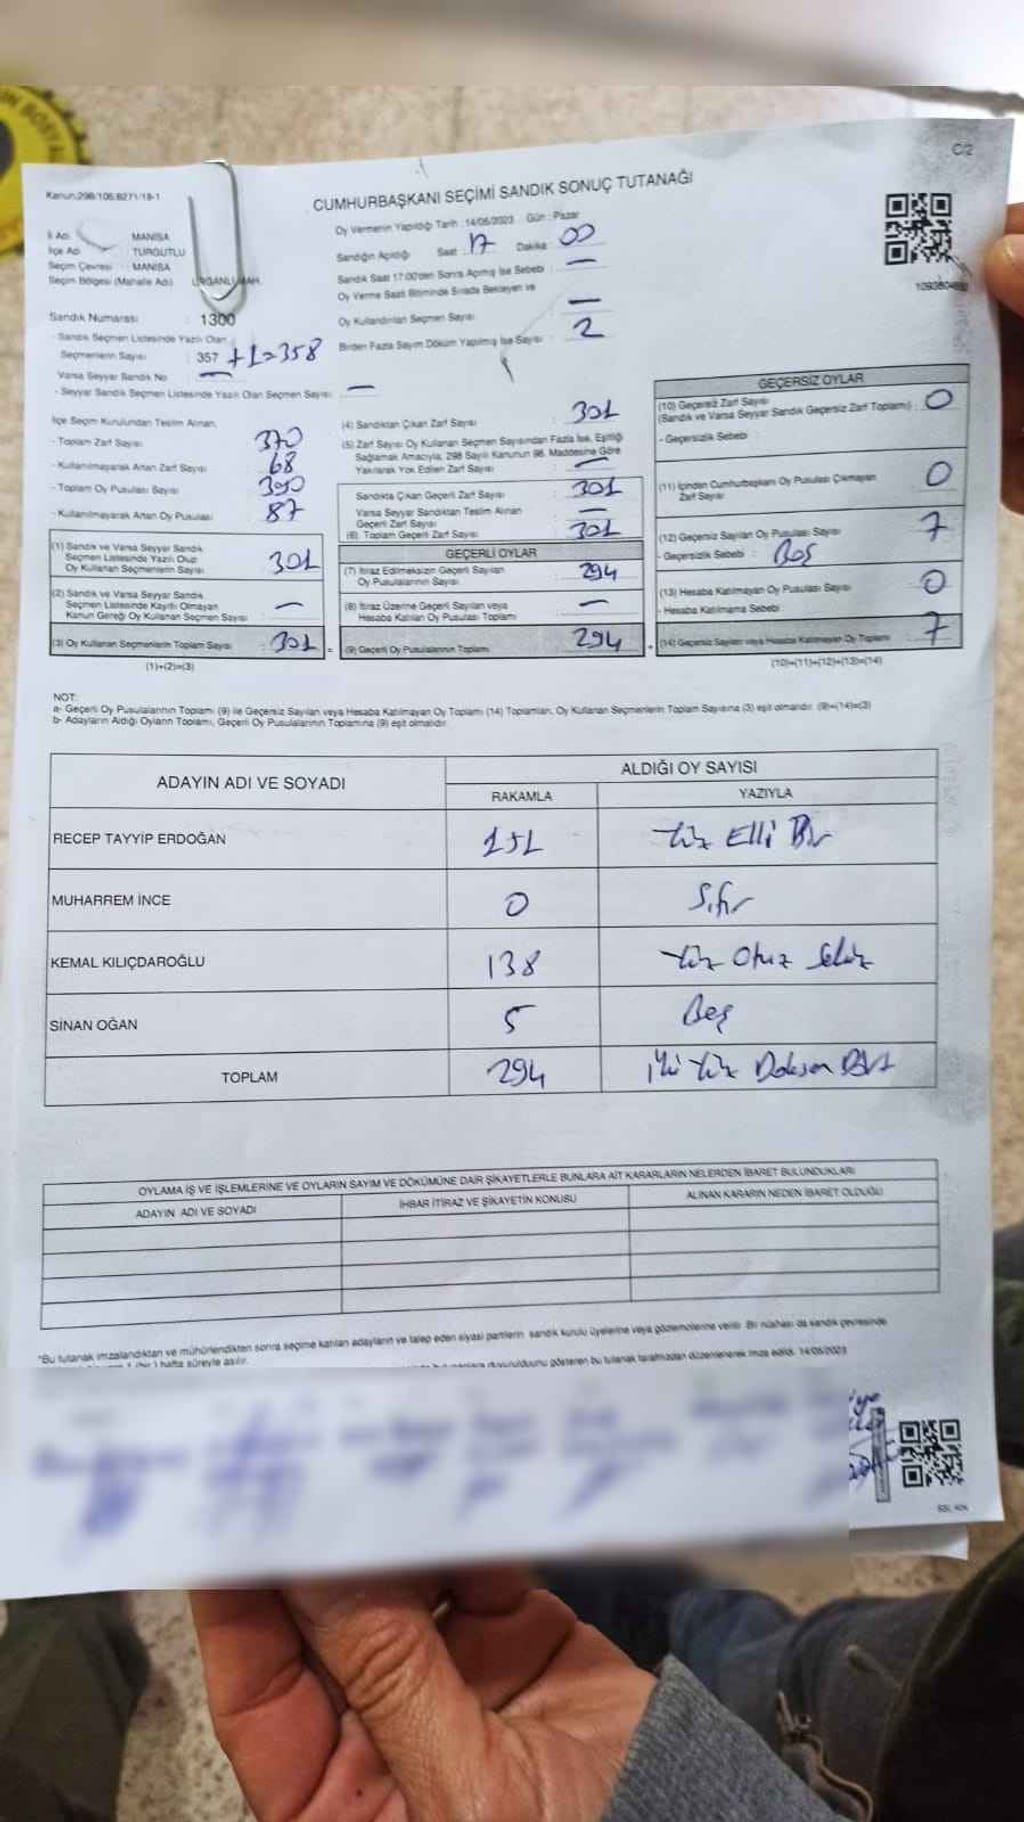 C/2
Kanun:298/105,8271/18-1
CUMHURBAŞKANI SEÇİMİ SANDIK SONUÇ TUTANAĞI
İl Adı : MANİSA
İlçe Adı : TURGUTLU
Seçim Çevresi : MANİSA
Seçim Bölgesi (Mahalle Adı) : URGANLI MAH.
Oy Vermenin Yapıldığı Tarih : 14/05/2023 Gün : Pazar
Sandığın Açıldığı Saat 17 Dakika 00
Sandık Saat 17:00'den Sonra Açılmış İse Sebebi : —
Oy Verme Saati Bitiminde Sırada Bekleyen ve
Oy Kullandırılan Seçmen Sayısı —
Birden Fazla Sayım Döküm Yapılmış İse Sayısı : 2
Sandık Numarası : 1300
- Sandık Seçmen Listesinde Yazılı Olan
Seçmenlerin Sayısı : 357 +1=358
Varsa Seyyar Sandık No : —
- Seyyar Sandık Seçmen Listesinde Yazılı Olan Seçmen Sayısı : —
İlçe Seçim Kurulundan Teslim Alınan,
- Toplam Zarf Sayısı : 370
- Kullanılmayarak Artan Zarf Sayısı : 68
- Toplam Oy Pusulası Sayısı : 390
- Kullanılmayarak Artan Oy Pusulası : 87
(1) Sandık ve Varsa Seyyar Sandık
Seçmen Listesinde Yazılı Olup
Oy Kullanan Seçmenlerin Sayısı : 301
(2) Sandık ve Varsa Seyyar Sandık
Seçmen Listesinde Kayıtlı Olmayan
Kanun Gereği Oy Kullanan Seçmen Sayısı : —
(3) Oy Kullanan Seçmenlerin Toplam Sayısı : 301
(1)+(2)=(3)
(4) Sandıktan Çıkan Zarf Sayısı : 301
(5) Zarf Sayısı Oy Kullanan Seçmen Sayısından Fazla İse, Eşitliği
Sağlamak Amacıyla, 298 Sayılı Kanunun 98. Maddesine Göre
Yakılarak Yok Edilen Zarf Sayısı : —
Sandıkta Çıkan Geçerli Zarf Sayısı : 301
Varsa Seyyar Sandıktan Teslim Alınan
Geçerli Zarf Sayısı : —
(6) Toplam Geçerli Zarf Sayısı : 301
GEÇERLİ OYLAR
(7) İtiraz Edilmeksizin Geçerli Sayılan
Oy Pusulalarının Sayısı : 294
(8) İtiraz Üzerine Geçerli Sayılan veya
Hesaba Katılan Oy Pusulası Toplamı : —
(9) Geçerli Oy Pusulalarının Toplamı : 294
GEÇERSİZ OYLAR
(10) Geçersiz Zarf Sayısı
(Sandık ve Varsa Seyyar Sandık Geçersiz Zarf Toplamı) : 0
- Geçersizlik Sebebi :
(11) İçinden Cumhurbaşkanı Oy Pusulası Çıkmayan
Zarf Sayısı : 0
(12) Geçersiz Sayılan Oy Pusulası Sayısı : 7
- Geçersizlik Sebebi : Boş
(13) Hesaba Katılmayan Oy Pusulası Sayısı : 0
- Hesaba Katılmama Sebebi :
(14) Geçersiz Sayılan veya Hesaba Katılmayan Oy Toplamı : 7
(10)+(11)+(12)+(13)=(14)
NOT:
a- Geçerli Oy Pusulalarının Toplamı (9) ile Geçersiz Sayılan veya Hesaba Katılmayan Oy Toplamı (14) Toplamları, Oy Kullanan Seçmenlerin Toplam Sayısına (3) eşit olmalıdır. (9)+(14)=(3)
b- Adayların Aldığı Oyların Toplamı, Geçerli Oy Pusulalarının Toplamına (9) eşit olmalıdır.
ADAYIN ADI VE SOYADI
ALDIĞI OY SAYISI
RAKAMLA YAZIYLA
RECEP TAYYİP ERDOĞAN 151 Yüz Elli Bir
MUHARREM İNCE 0 Sıfır
KEMAL KILIÇDAROĞLU 138 Yüz Otuz Sekiz
SİNAN OĞAN 5 Beş
TOPLAM 294 İki Yüz Doksan Dört
OYLAMA İŞ VE İŞLEMLERİNE VE OYLARIN SAYIM VE DÖKÜMÜNE DAİR ŞİKAYETLERLE BUNLARA AİT KARARLARIN NELERDEN İBARET BULUNDUKLARI
ADAYIN ADI VE SOYADI İHBAR İTİRAZ VE ŞİKAYETİN KONUSU ALINAN KARARIN NEDEN İBARET OLDUĞU
*Bu tutanak imzalandıktan ve mühürlendikten sonra seçime katılan adayların ve talep eden siyasi partilerin sandık kurulu üyelerine veya gözlemcilerine verilir. Bir nüshası da sandık çevresinde
(bir) hafta süreyle asılır.
duyurulduğunu gösteren bu tutanak tarafımızdan düzenlenerek imza edildi. 14/05/2023